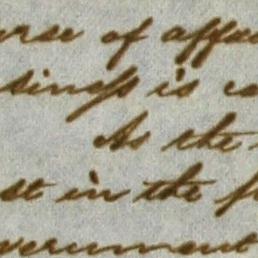 urse of affai
siness is co
As the
st in the f
vernment